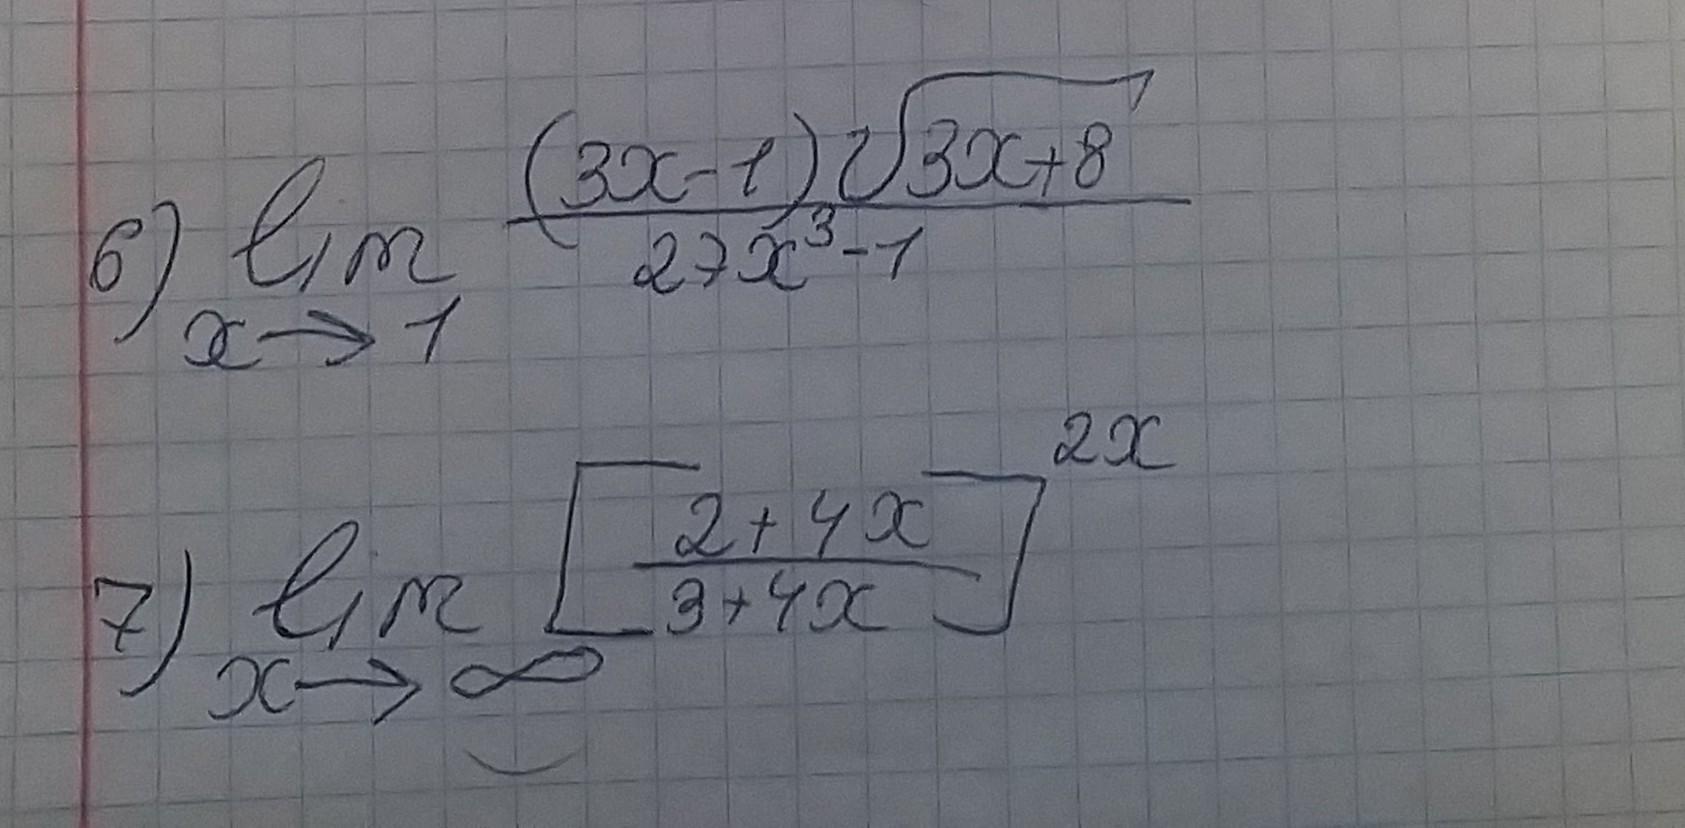 6) lim x→1 (3x-1)√(3x+8) / (27x³-1)
7) lim x→∞ [(2+4x)/(3+4x)]^(2x)